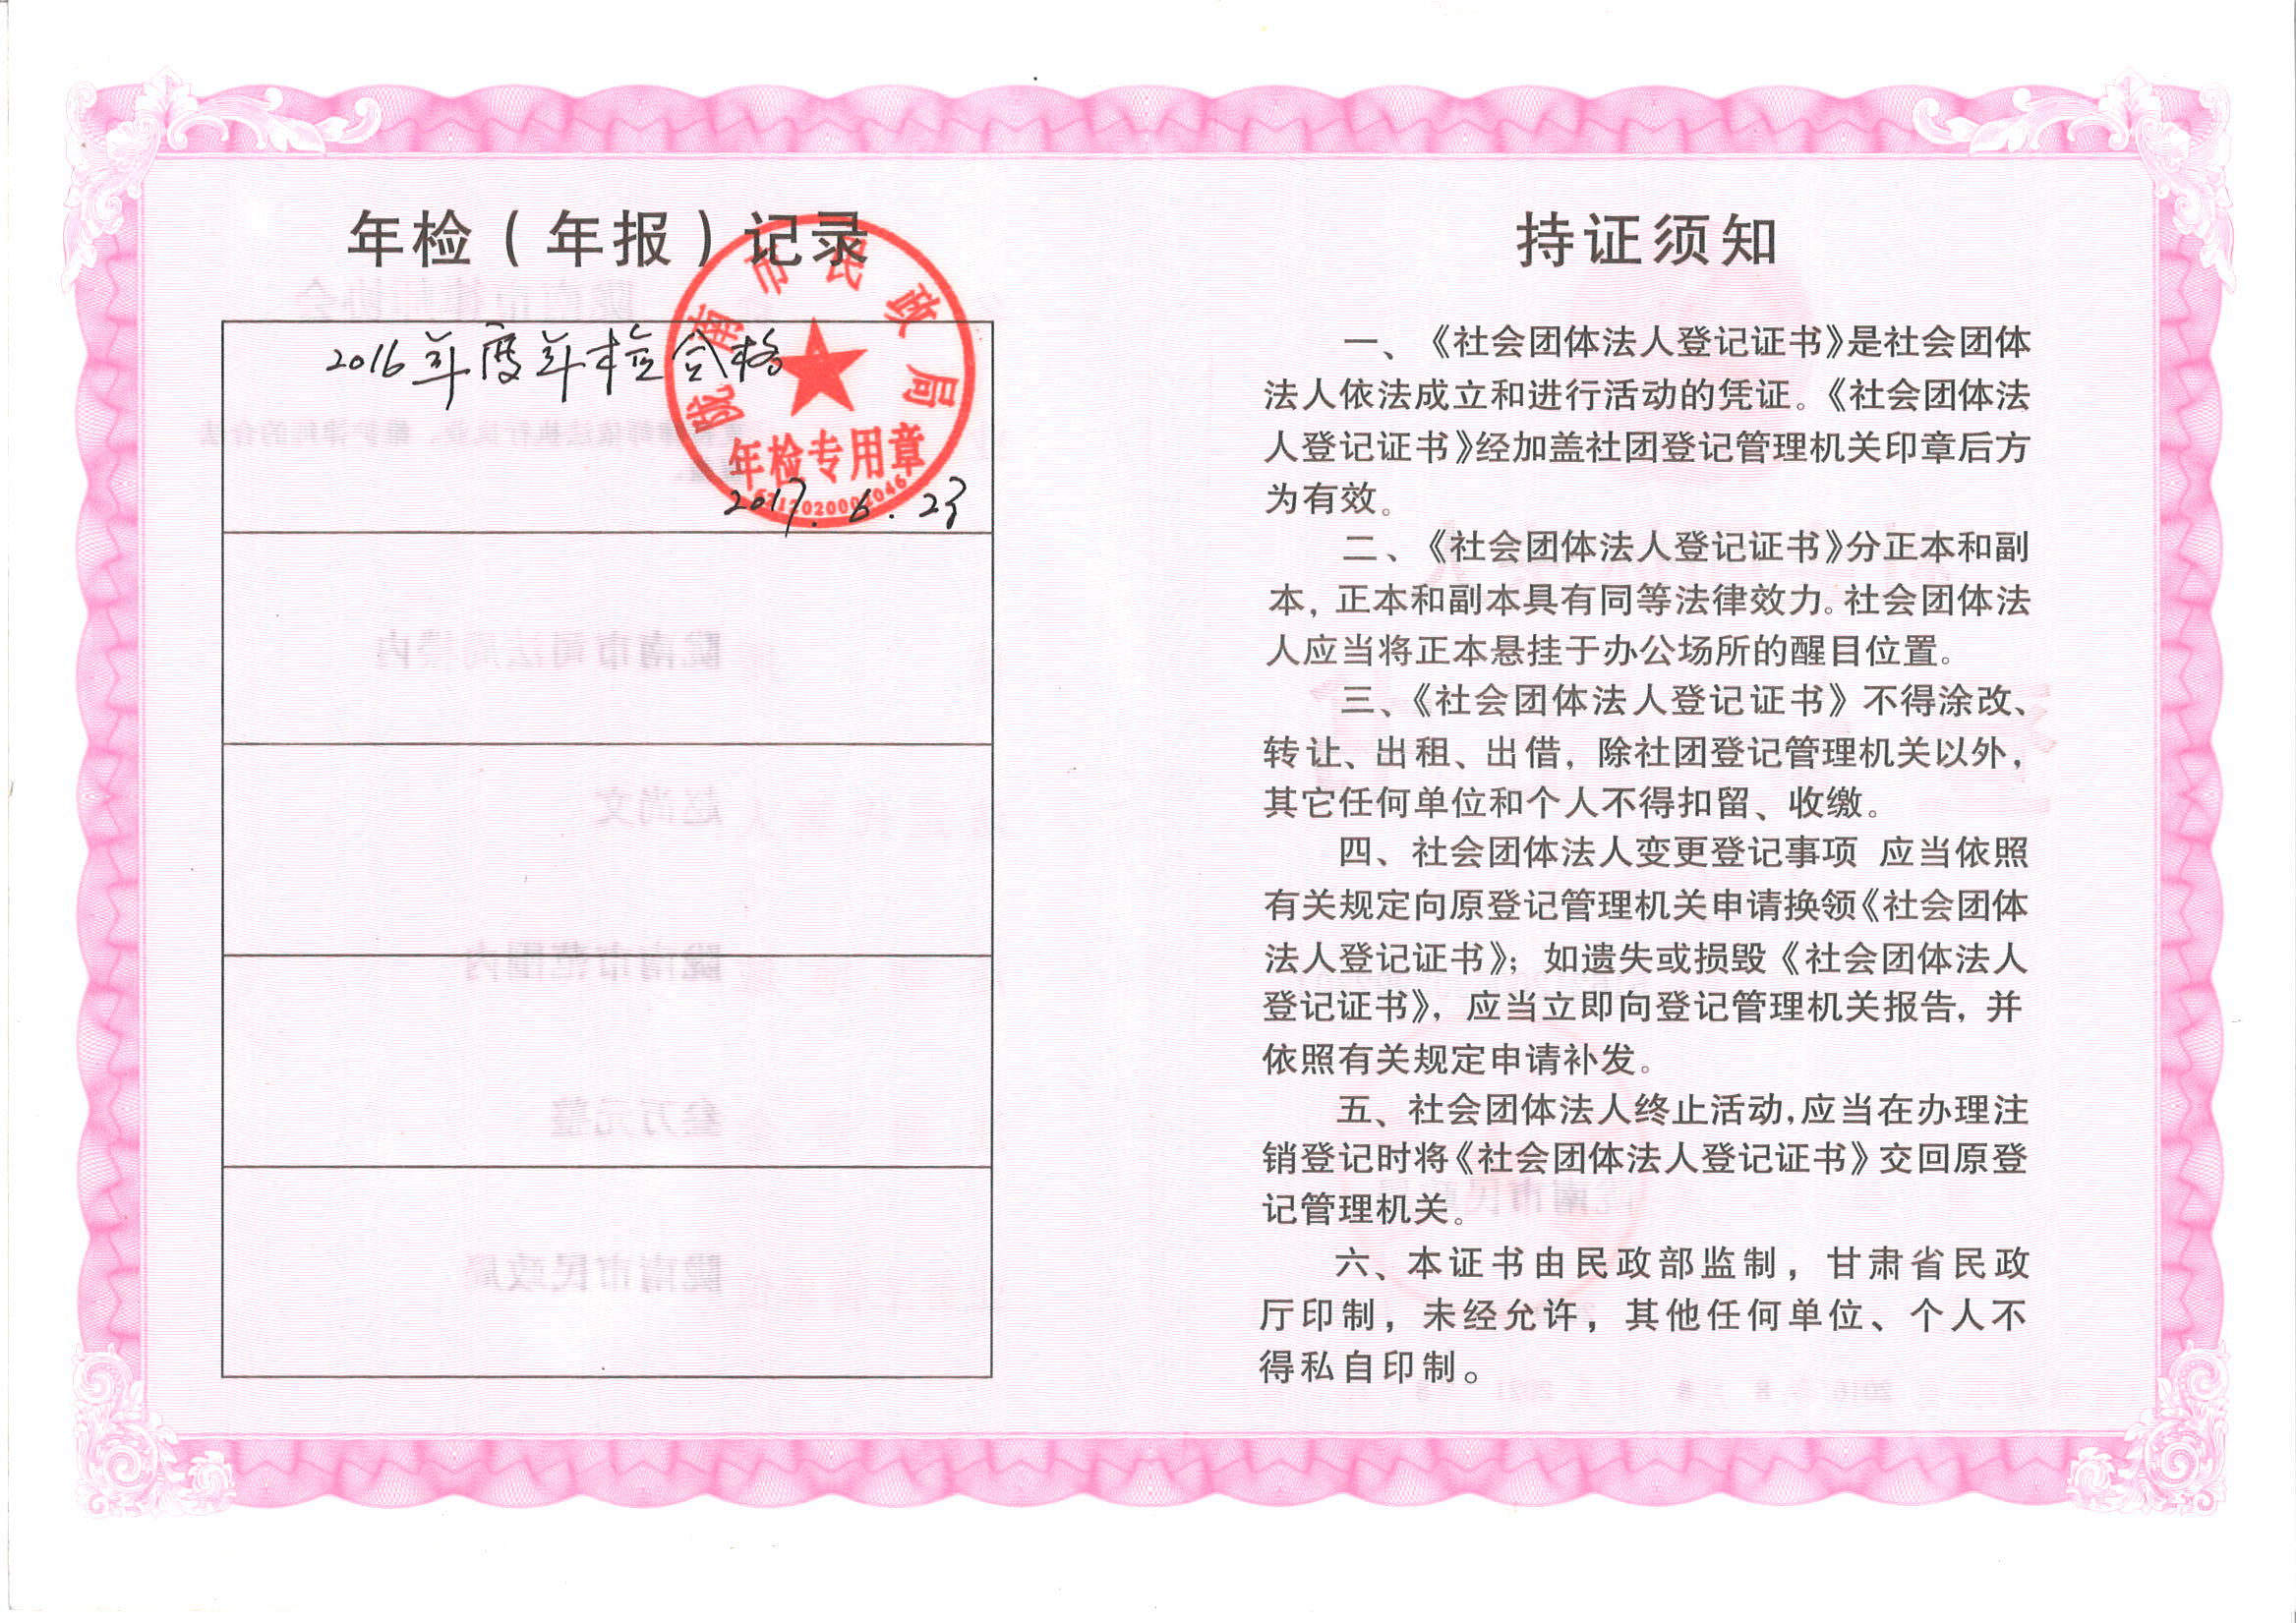 年检（年报）记录
2016年度年检合格
陇南市民政局
年检专用章
2017.6.23
持证须知
一、《社会团体法人登记证书》是社会团体
法人依法成立和进行活动的凭证。《社会团体法
人登记证书》经加盖社团登记管理机关印章后方
为有效。
二、《社会团体法人登记证书》分正本和副
本，正本和副本具有同等法律效力。社会团体法
人应当将正本悬挂于办公场所的醒目位置。
三、《社会团体法人登记证书》不得涂改、
转让、出租、出借，除社团登记管理机关以外，
其它任何单位和个人不得扣留、收缴。
四、社会团体法人变更登记事项 应当依照
有关规定向原登记管理机关申请换领《社会团体
法人登记证书》；如遗失或损毁《社会团体法人
登记证书》，应当立即向登记管理机关报告，并
依照有关规定申请补发。
五、社会团体法人终止活动，应当在办理注
销登记时将《社会团体法人登记证书》交回原登
记管理机关。
六、本证书由民政部监制，甘肃省民政
厅印制，未经允许，其他任何单位、个人不
得私自印制。